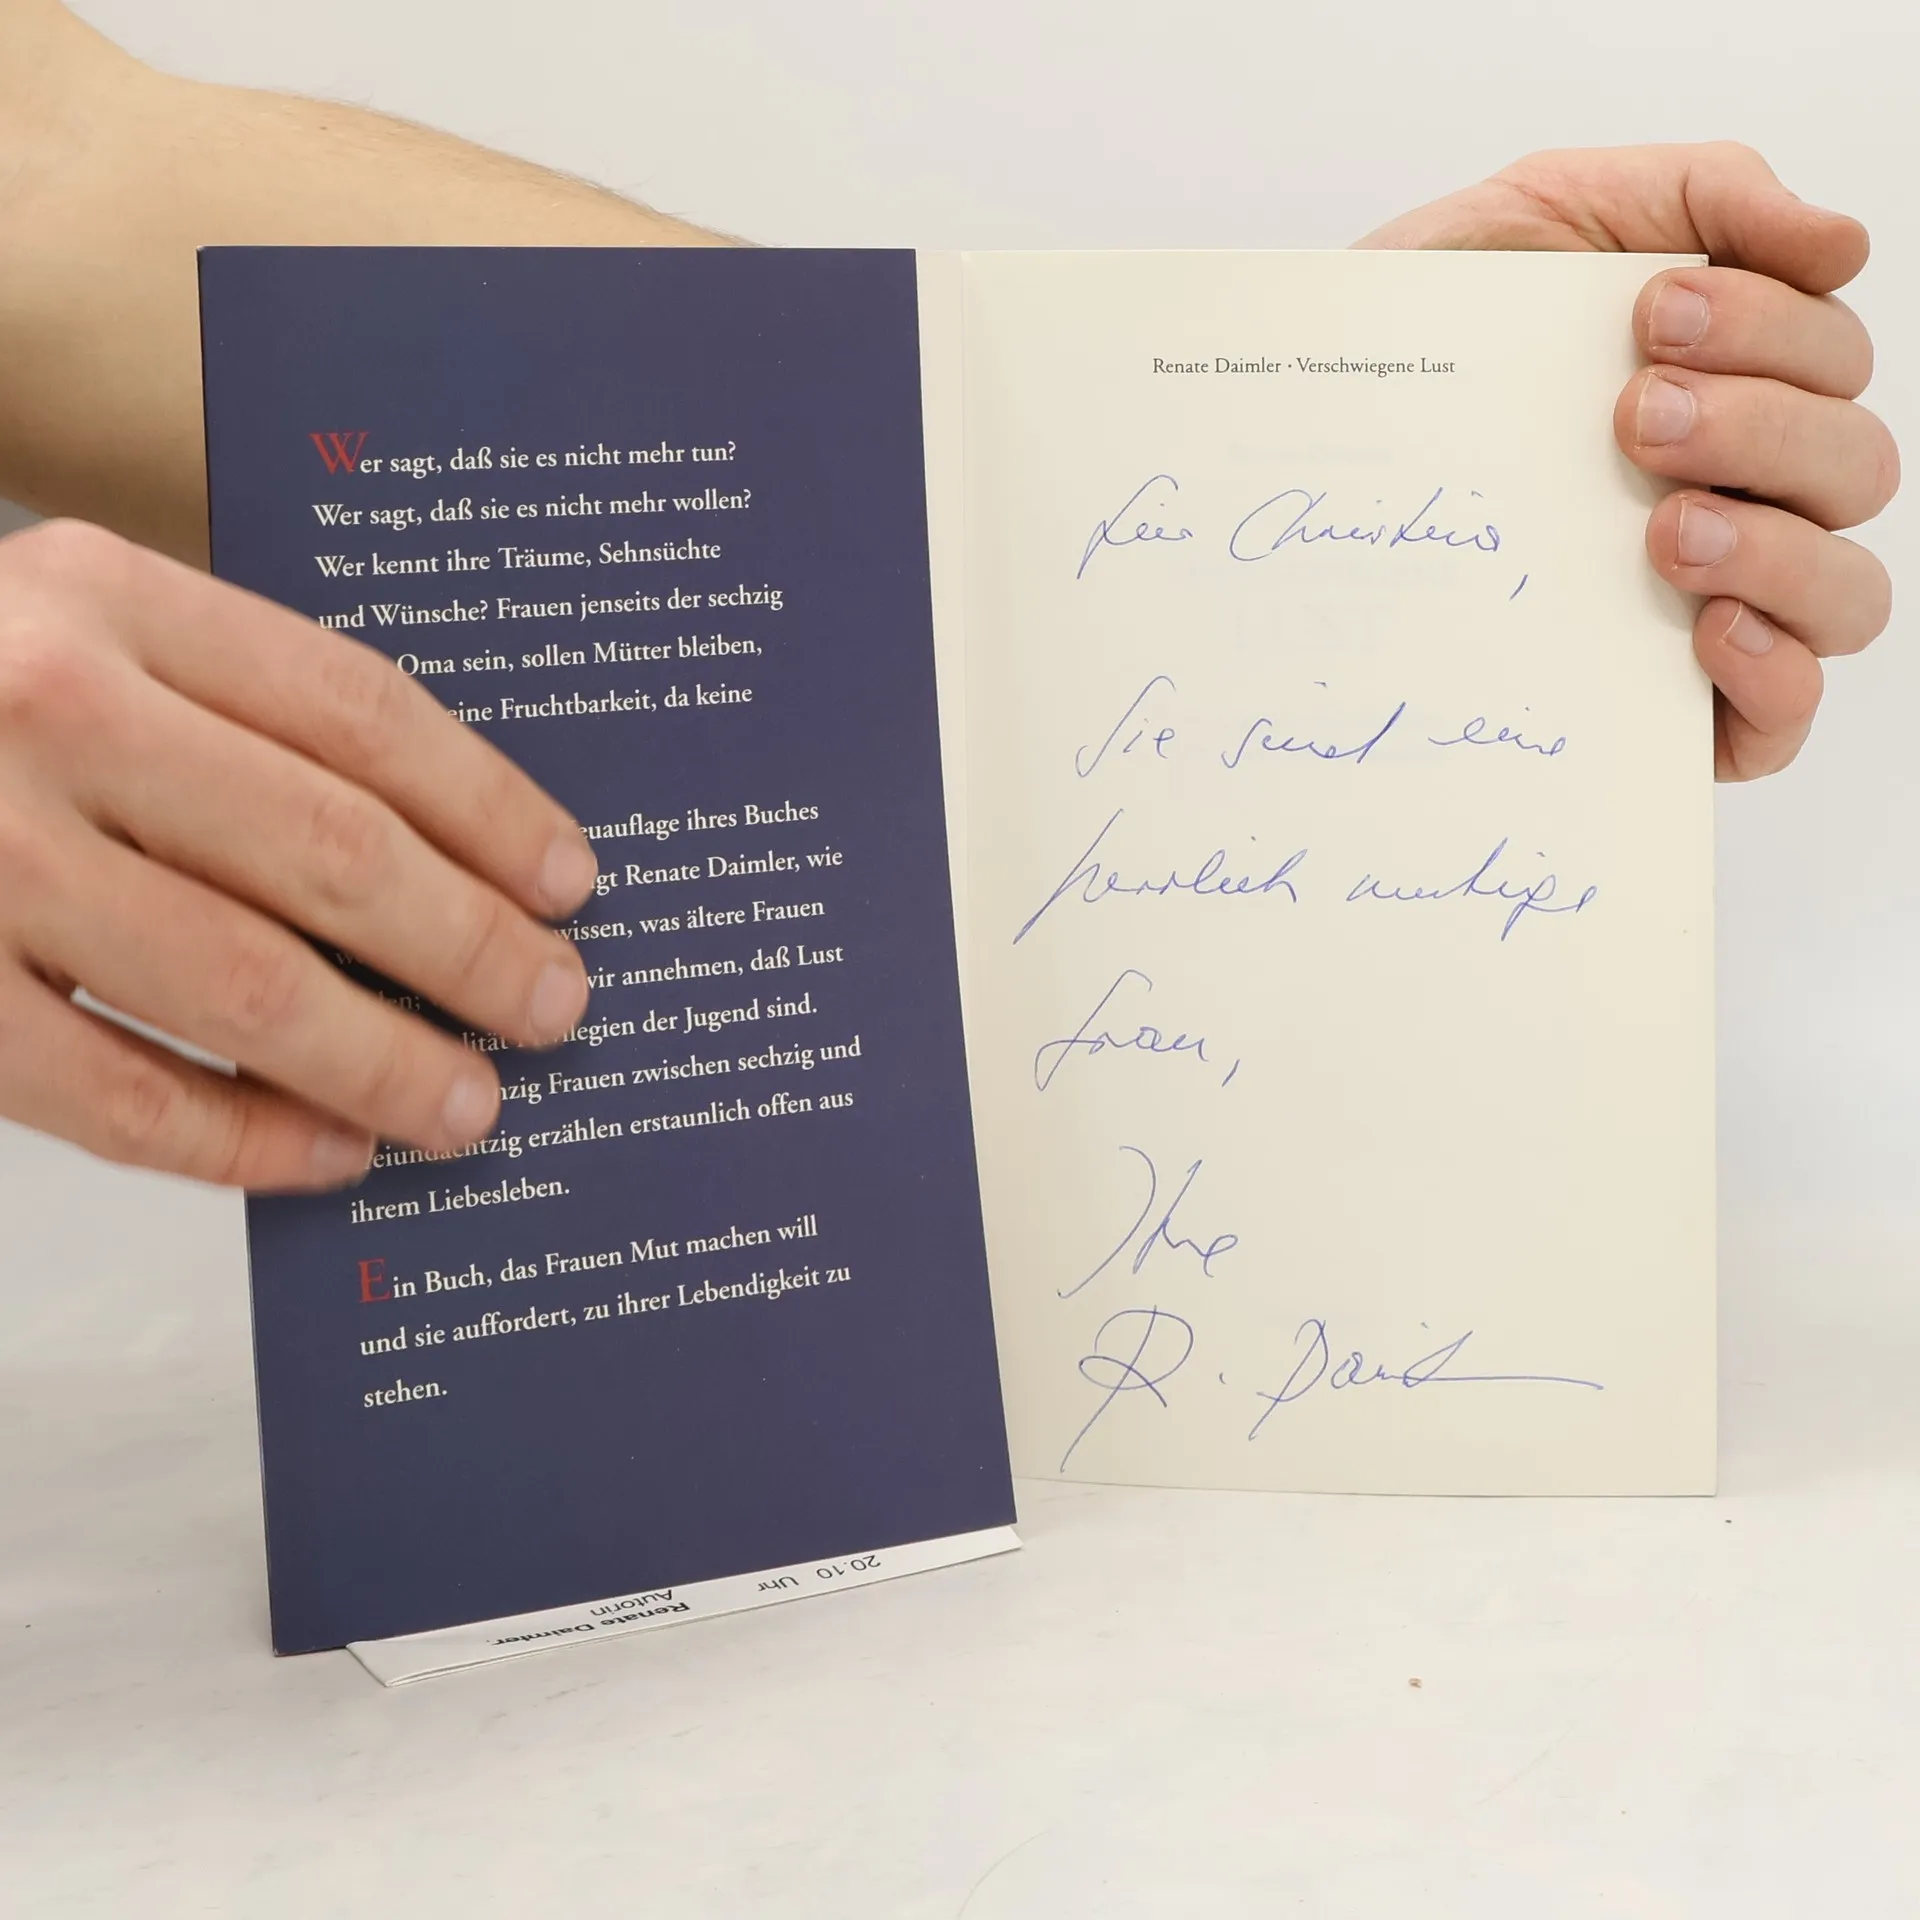 Wer sagt, daß sie es nicht mehr tun?
Wer sagt, daß sie es nicht mehr wollen?
Wer kennt ihre Träume, Sehnsüchte
und Wünsche? Frauen jenseits der sechzig
Oma sein, sollen Mütter bleiben,
eine Fruchtbarkeit, da keine
euauflage ihres Buches
gt Renate Daimler, wie
wissen, was ältere Frauen
wir annehmen, daß Lust
lität legien der Jugend sind.
nzig Frauen zwischen sechzig und
eiundachtzig erzählen erstaunlich offen aus
ihrem Liebesleben.
Ein Buch, das Frauen Mut machen will
und sie auffordert, zu ihrer Lebendigkeit zu
stehen.
20.10 Uhr
Renate Daimler,
Autorin
Renate Daimler · Verschwiegene Lust
Für Christina,
Sie sind eine
herrlich mutige
Frau,
Ihre
R. Daimler